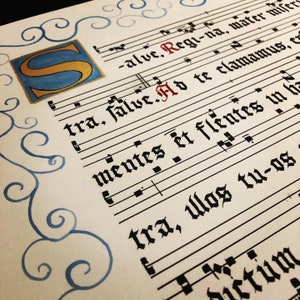 S -alve, Regina, mater miser
tra, salve. Ad te clamamus,
mentes et flentes in ha
tra, illos tu-os
dictum